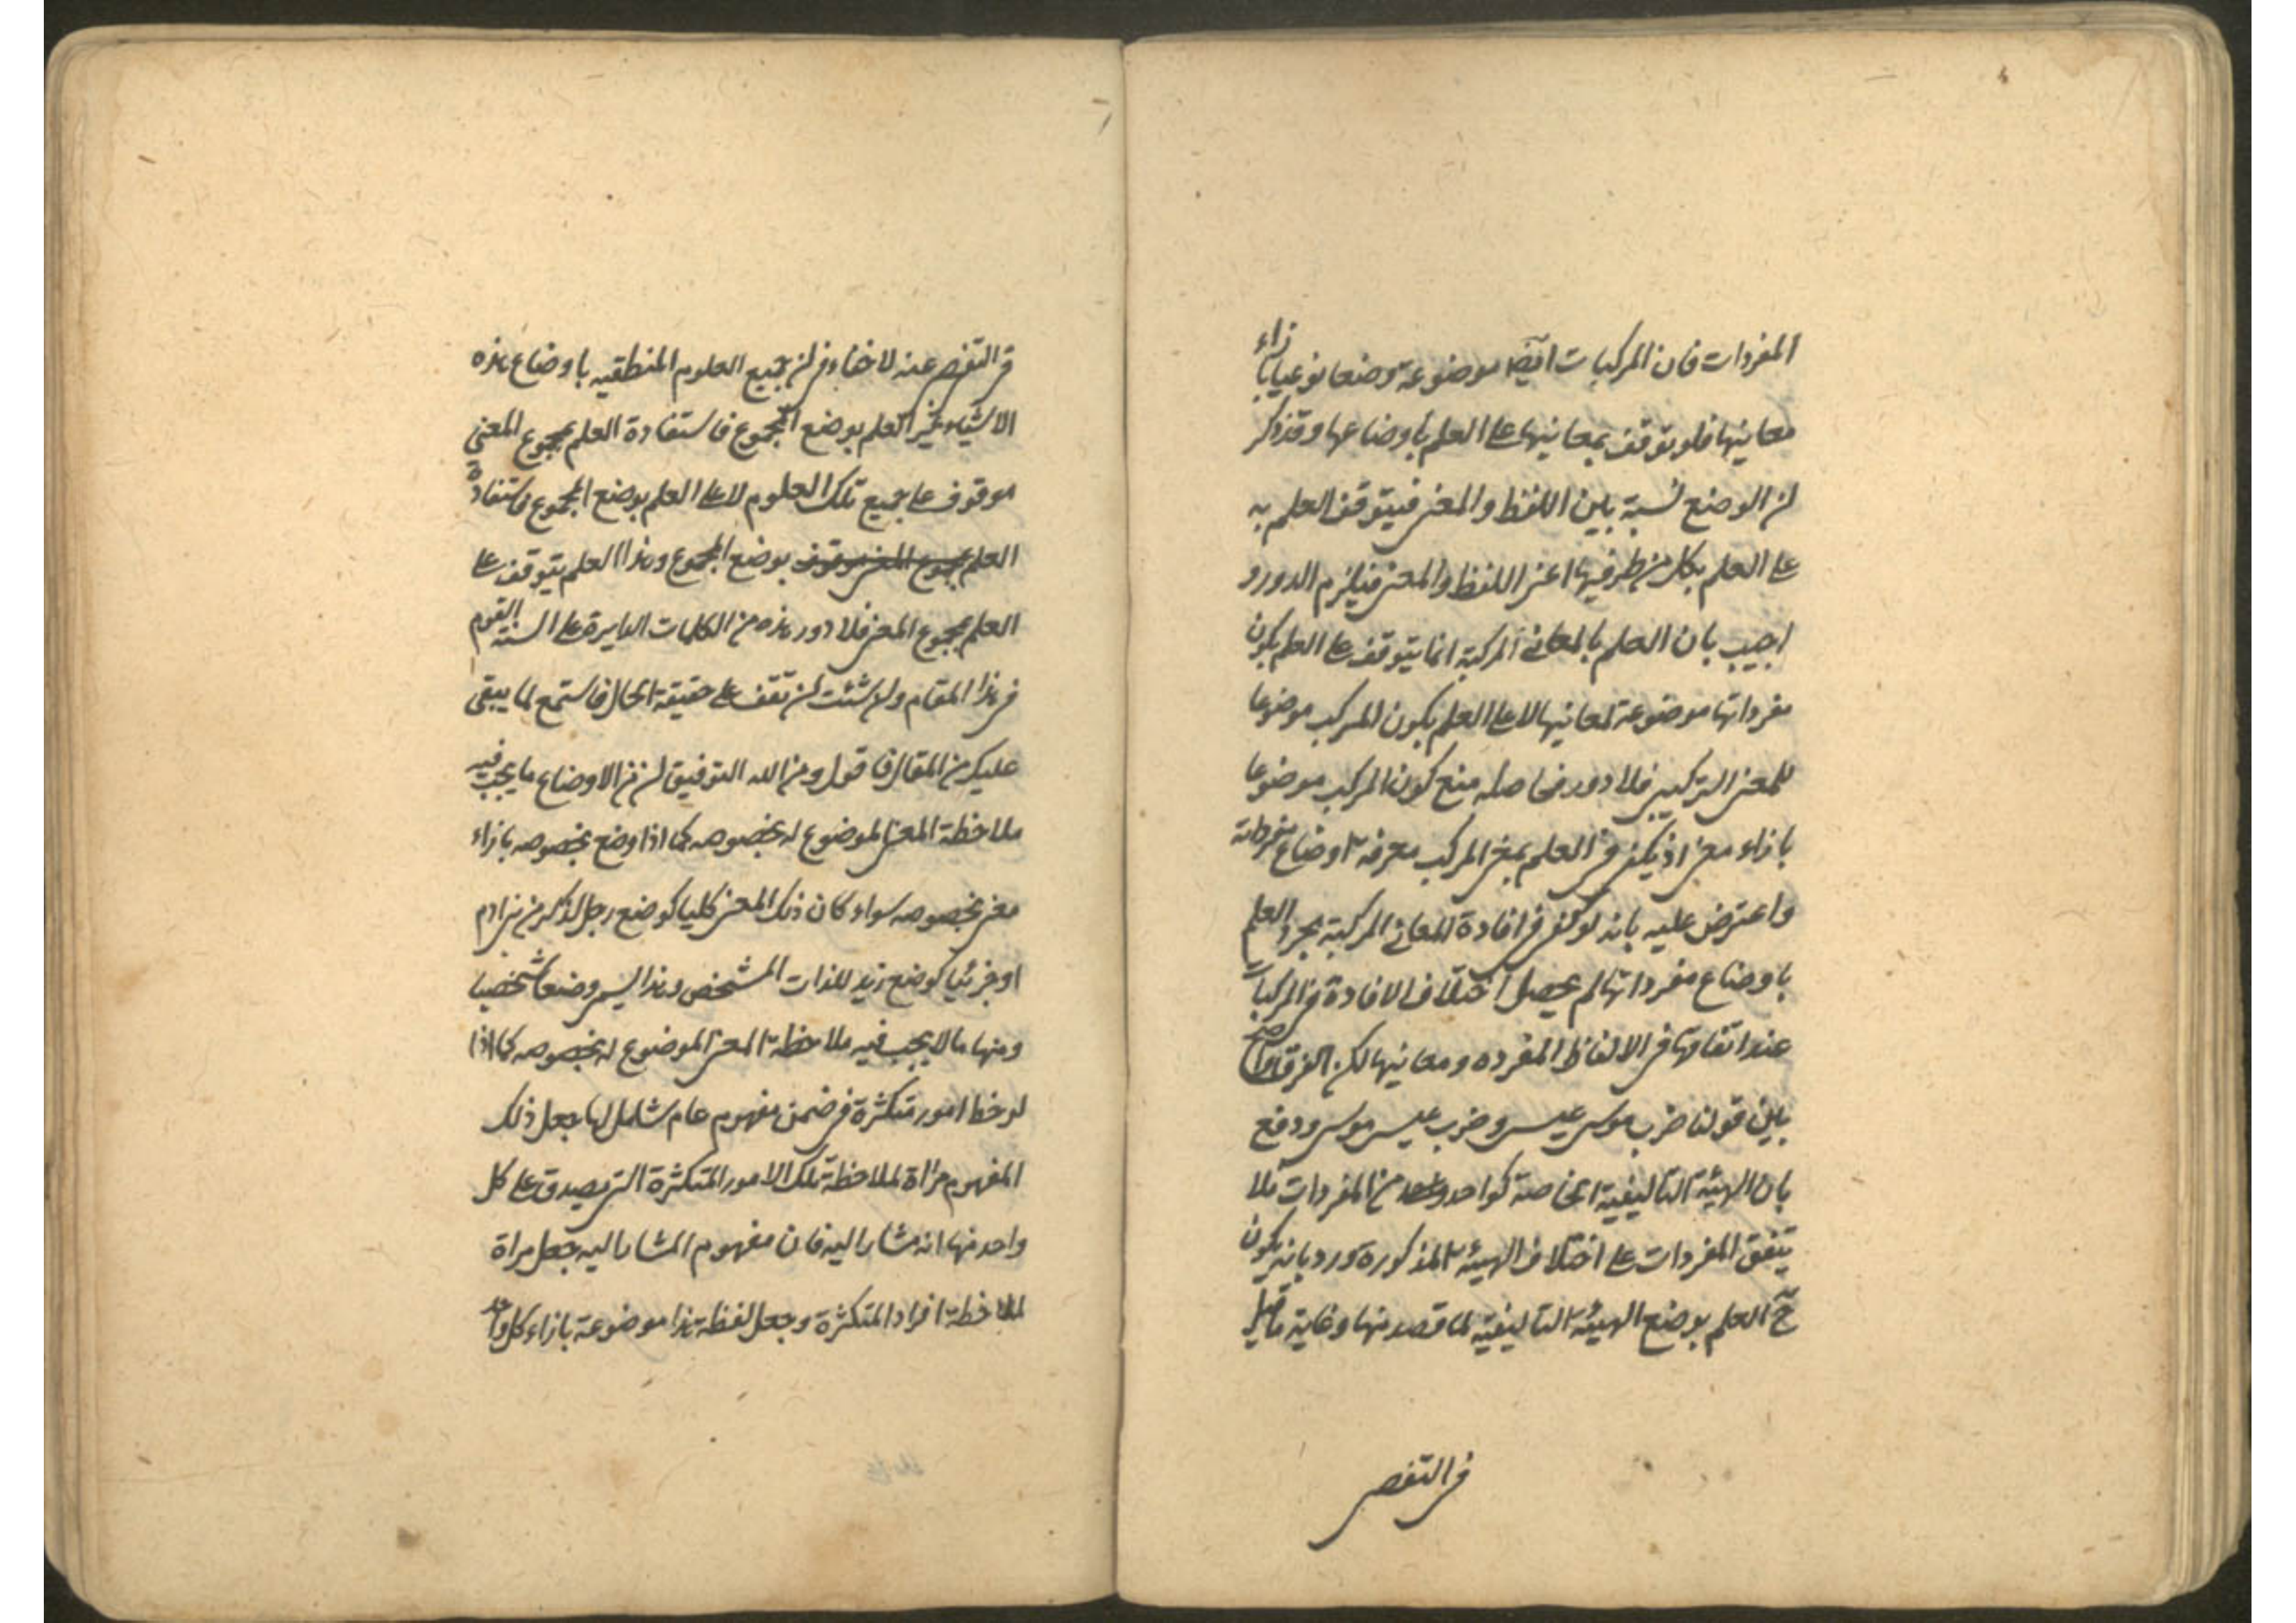 المفردات فان المركبات ايضا موضوعة وضعا نوعيا بازاء
معانيها فلو توقف بمعانيها على العلم باوضاعها وقد ذكر
ان الوضع نسبة بين اللفظ والمعنى فيتوقف العلم به
على العلم بكل من طرفيها اعنى اللفظ والمعنى فيلزم الدور و
اجيب بان العلم بالمعانى المركبة انما يتوقف على العلم بكون
مفرداتها موضوعة لمعانيها لا على العلم بكون المركب موضوعا
للمعنى التركيبى فلا دور فحاصله منع كون المركب موضوعا
بازاء معنى اذ يكفى فى العلم بمعنى المركب معرفة اوضاع مفرداته
واعترض عليه بانه لو كفى فى افادة المعانى المركبة مجرد العلم
باوضاع مفرداتها لم يحصل اختلاف الافادة فى المركبات
عند اتفاقها فى الالفاظ المفرده ومعانيها لكن الفرق واضح
بين قولنا ضرب موسى عيسى وضرب عيسى موسى ودفع
بان الهيئة التاليفية الخاصة كواحد من المفردات فلا
يتفق المفردات على اختلاف الهيئة المذكورة ورد بانه يكون
ح العلم بوضع الهيئة التاليفية لما قصد منها وغاية ما قيل
فى التفصى
فى التفصى عنه لا خفاء فى ان جميع العلوم المنطقيه باوضاع هذه
الاشياء غير العلم بوضع المجموع فاستفادة العلم بمجموع المعنى
موقوف على جميع تلك العلوم لا على العلم بوضع المجموع فاستفادة
العلم بمجموع المعنى موقوف بوضع المجموع وهذا العلم يتوقف على
العلم بمجموع المعنى فلا دور هذه من الكلمات الدايرة على السنة القوم
فى هذا المقام ولان شئت ان تقف على حقيقة الحال فاستمع لما يبقى
عليك من المقال فاقول ومن الله التوفيق ان من الاوضاع ما يجب فيه
ملاحظة المعنى الموضوع له بخصوصه كما اذا وضع بخصوصه بازاء
معنى بخصوصه سواء كان ذلك المعنى كليا كوضع رجل لذكر من بنى ادم
او جزئيا كوضع زيد للذات المشخص وهذا يسمى وضعا شخصيا
ومنها ما لا يجب فيه ملاحظة المعنى الموضوع له بخصوصه كما اذا
لوحظ امور متكثرة فى ضمن مفهوم عام شامل لها بجعل ذلك
المفهوم مراة لملاحظة تلك الامور المتكثرة التى يصدق على كل
واحد منها انه مشار اليه فان مفهوم المشار اليه جعل مراة
لملاحظة افراد المتكثرة وجعل لفظة هذا موضوعة بازاء كل واحد